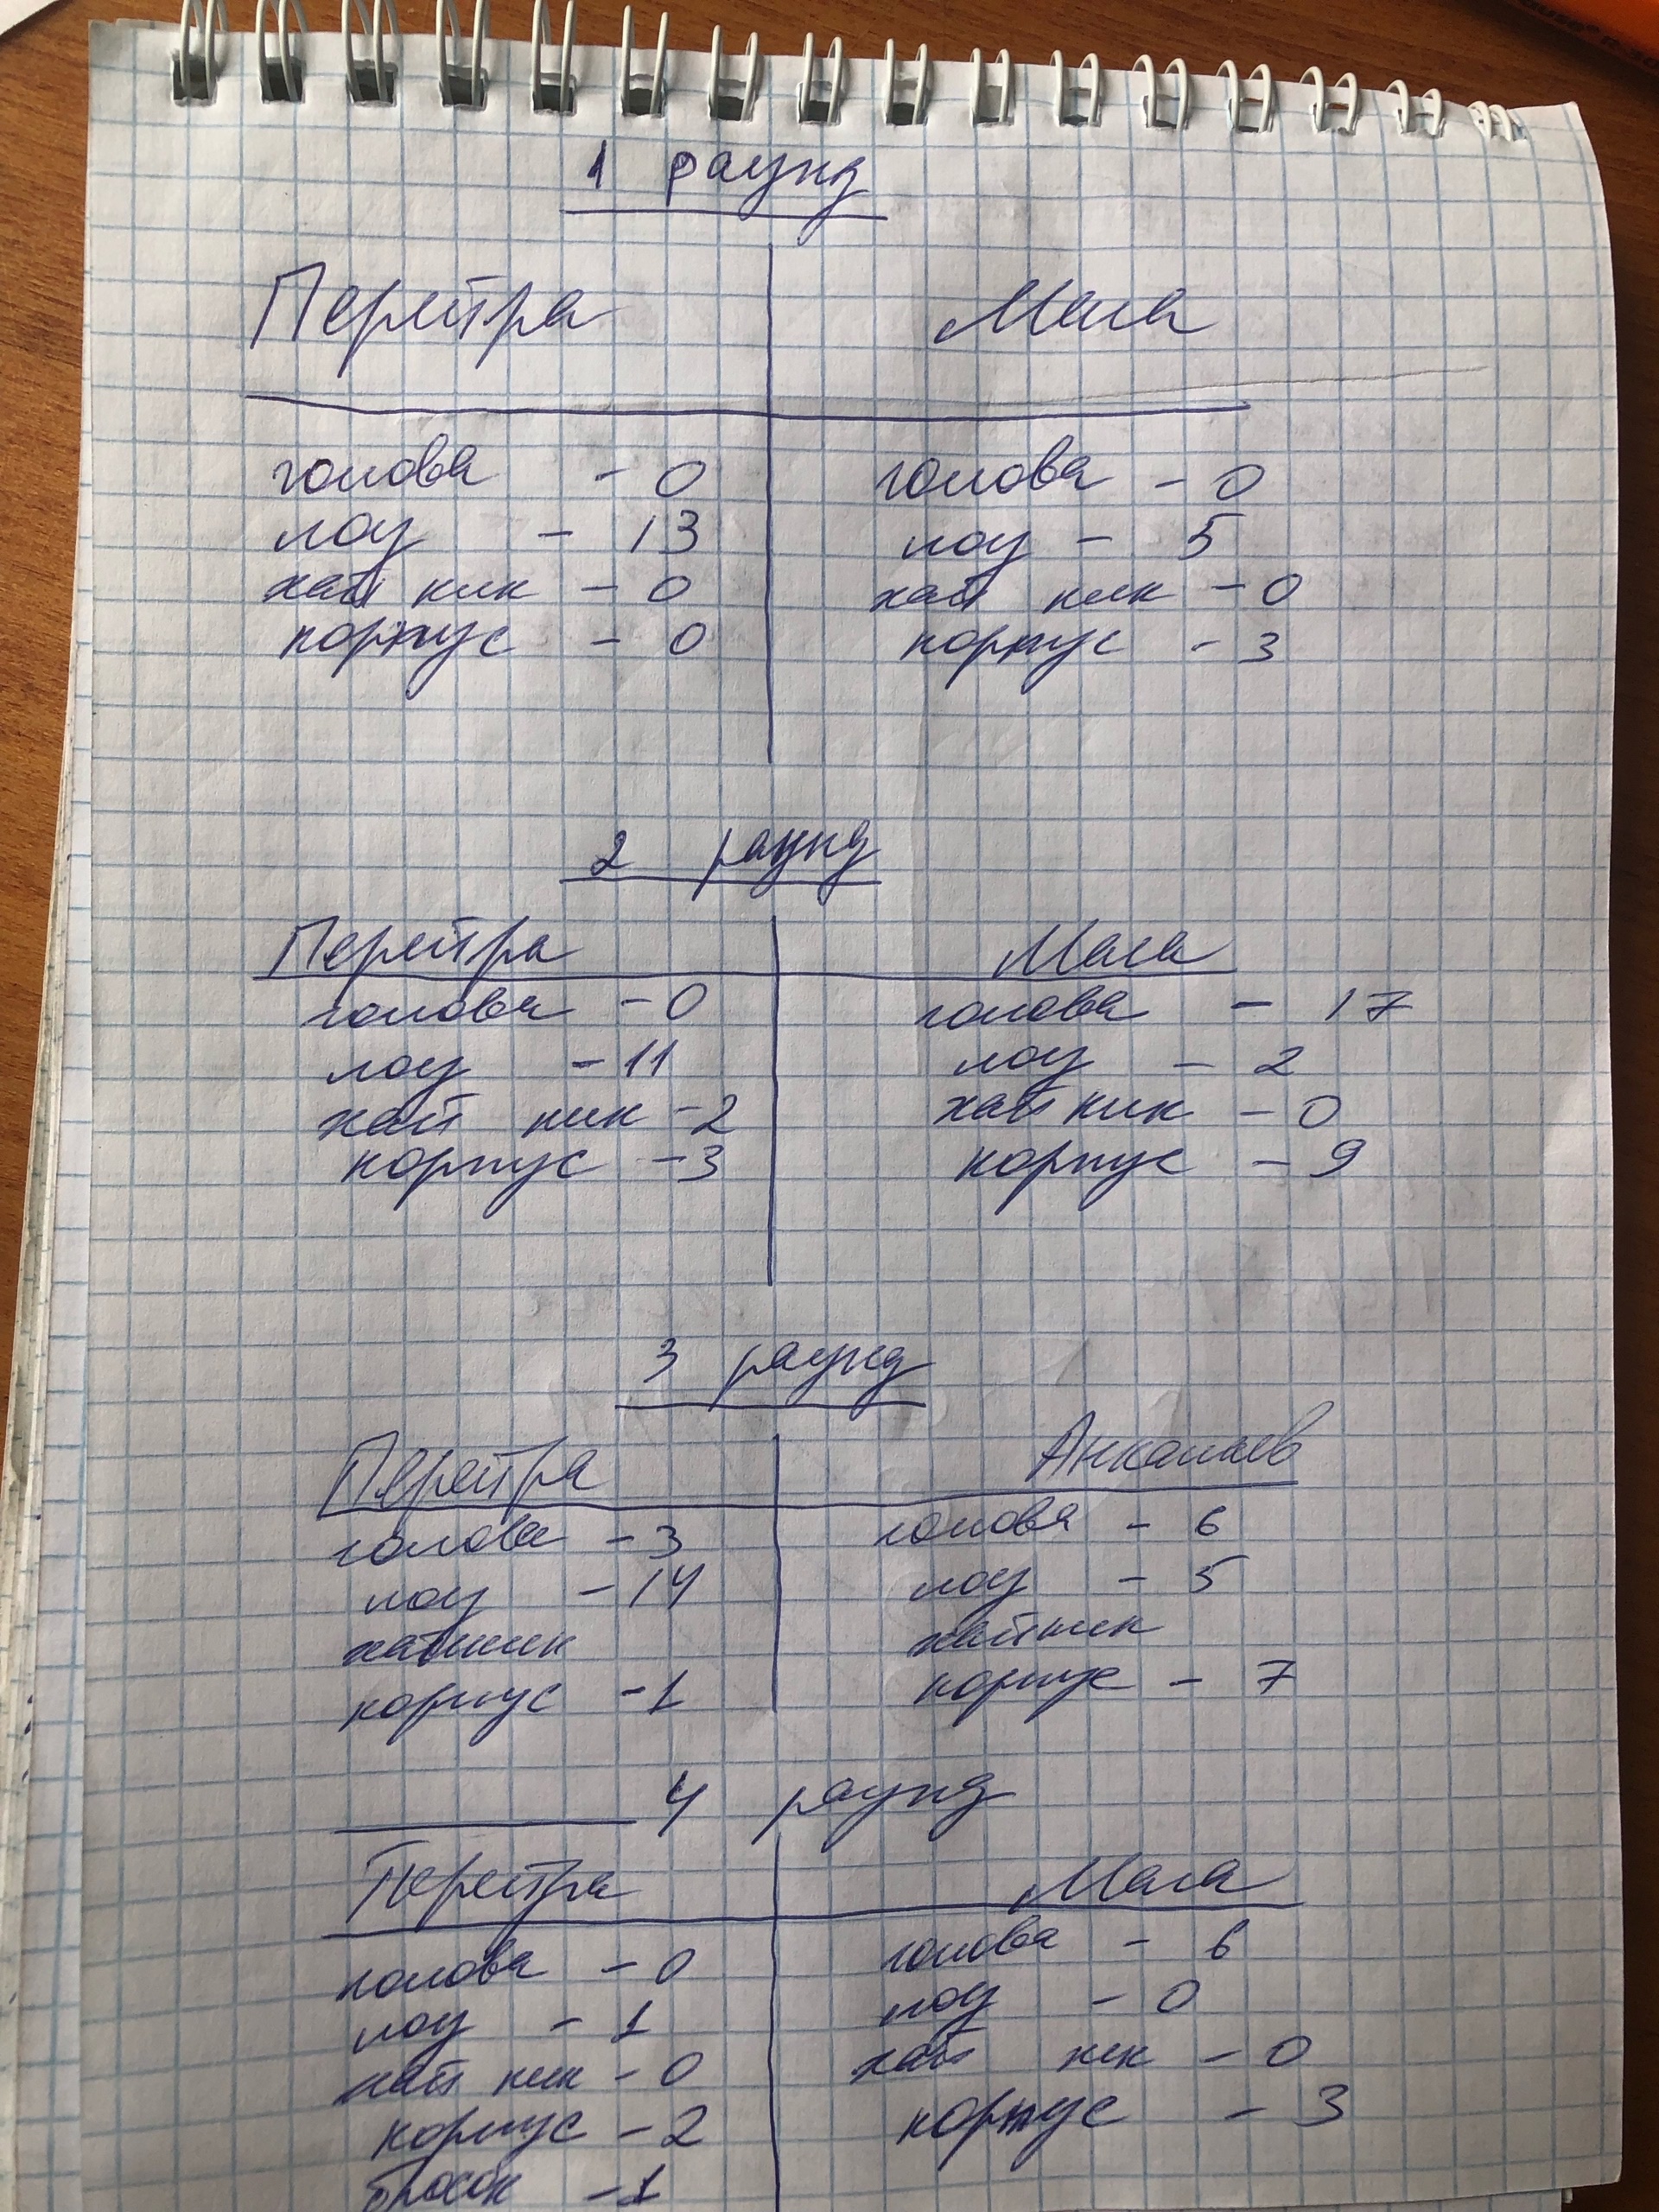 1 раунд
Перейра Мага
голова - 0 голова - 0
лоу - 13 лоу - 5
хай кик - 0 хай кик - 0
корпус - 0 корпус - 3
2 раунд
Перейра Мага
голова - 0 голова - 17
лоу - 11 лоу - 2
хай кик - 2 хай кик - 0
корпус - 3 корпус - 9
3 раунд
Перейра Анкалаев
голова - 3 голова - 6
лоу - 14 лоу - 5
хайкик хайкик
корпус - 1 корпус - 7
4 раунд
Перейра Мага
голова - 0 голова - 6
лоу - 1 лоу - 0
хай кик - 0 хай кик - 0
корпус - 2 корпус - 3
бросок - 1